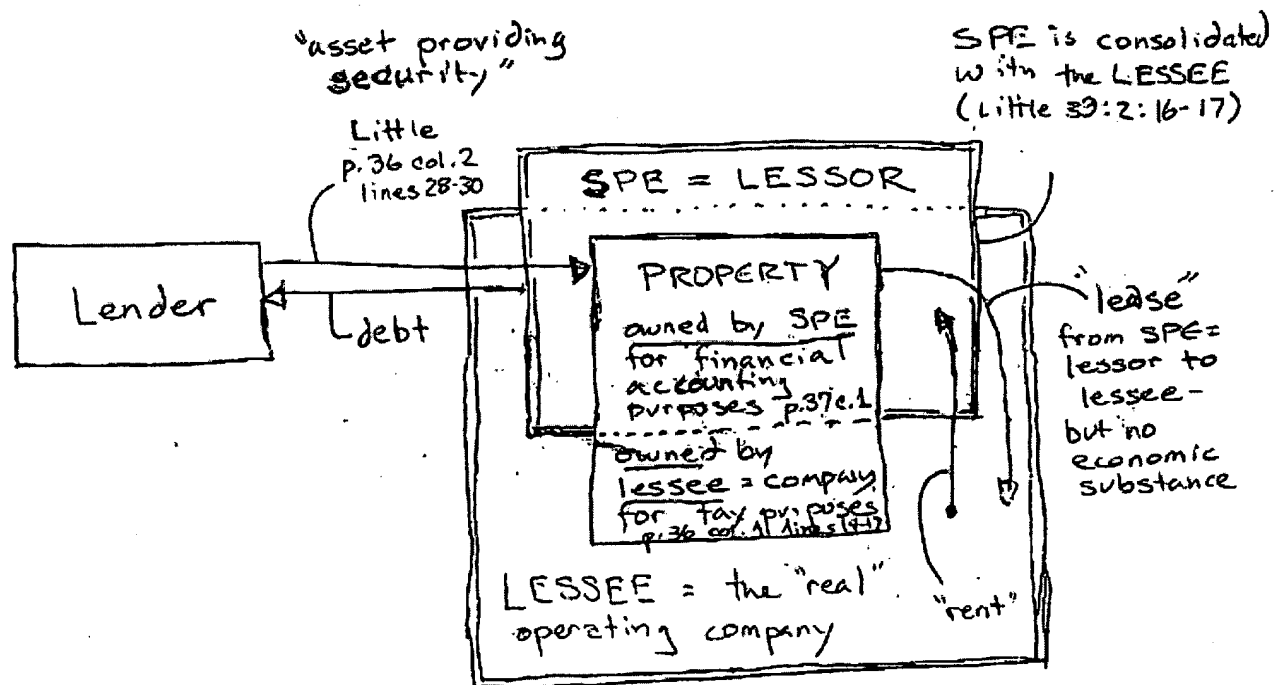 "asset providing
security"
Little
p.36 col.2
lines 28-30
SPE is consolidated
with the LESSEE
(Little 39:2:16-17)
SPE = LESSOR
Lender
debt
PROPERTY
owned by SPE
for financial
accounting
purposes p.37c.1
owned by
lessee = company
for tax purposes
p.36 col. 1 lines
"lease"
from SPE=
lessor to
lessee-
but no
economic
substance
LESSEE = the "real"
operating company
"rent"